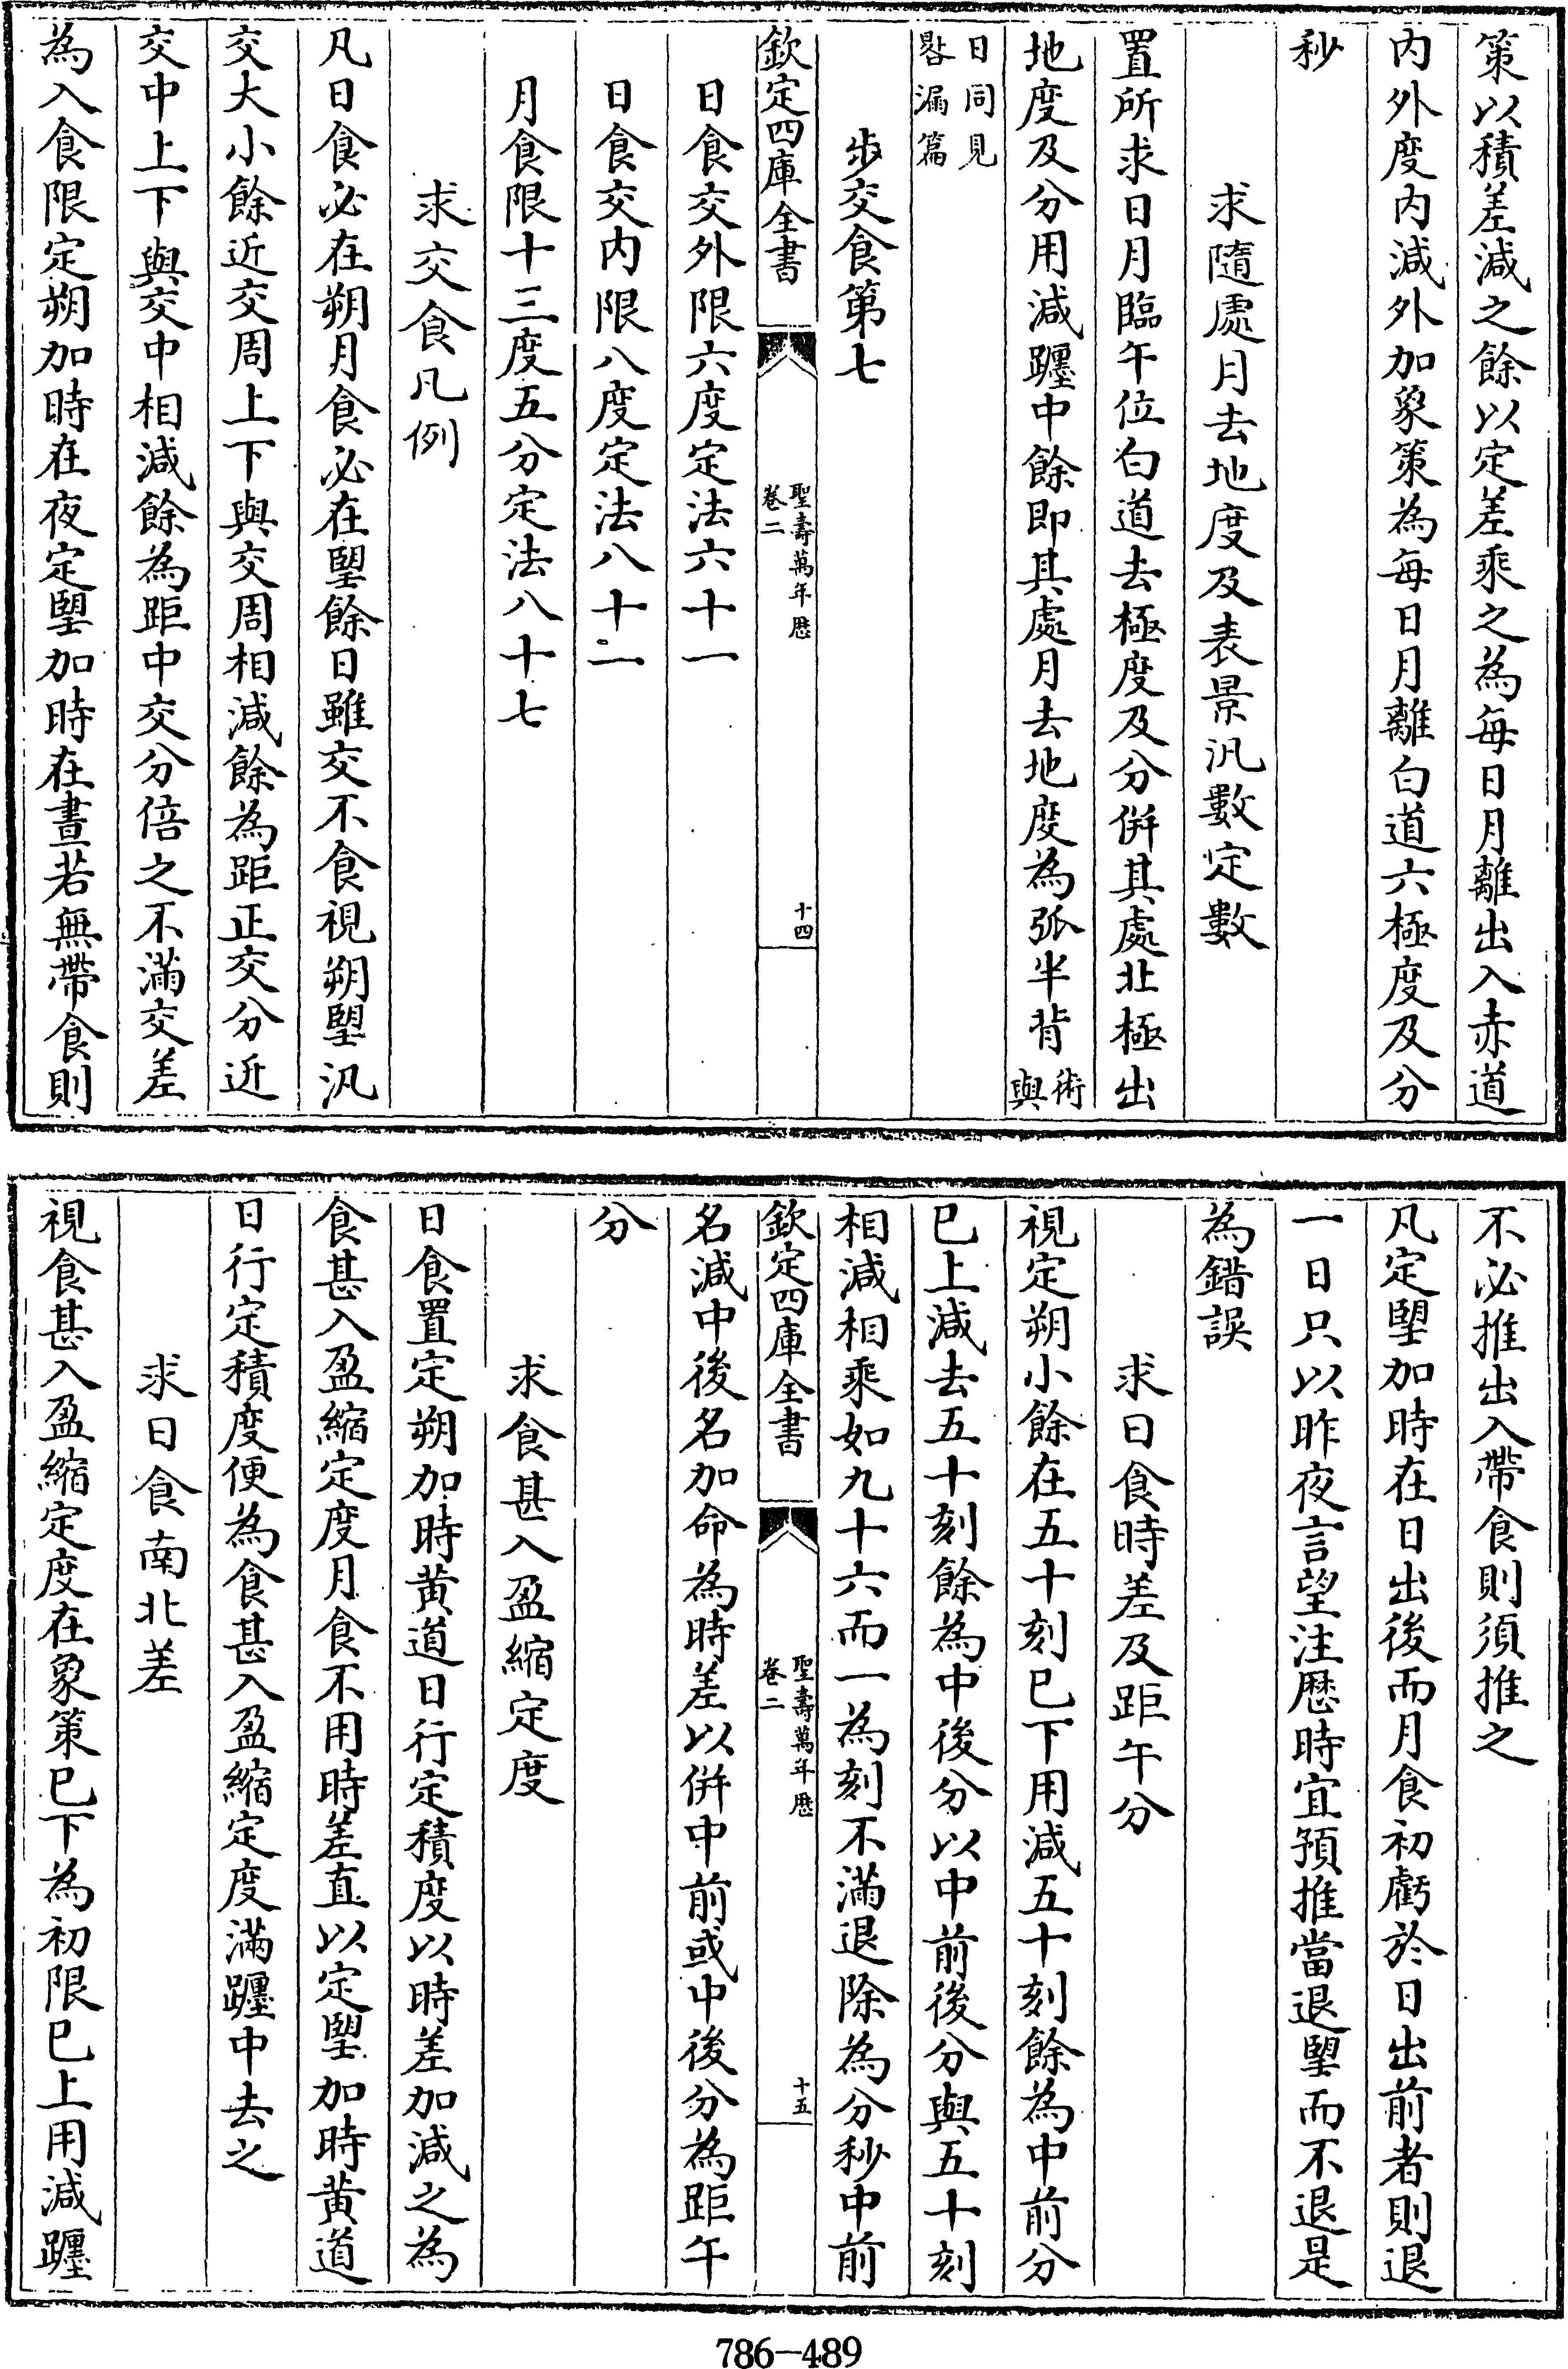 策以積差減之餘以定差乘之為每日月離出入赤道
内外度内減外加象策為每日月離白道六極度及分
秒
求隨處月去地度及表景汎數定數
置所求日月臨午位白道去極度及分併其處北極出
地度及分用減躔中餘即其處月去地度為弧半背術與
日同見晷漏篇
步交食第七
欽定四庫全書
聖壽萬年厯
卷二
十四
日食交外限六度定法六十一
日食交内限八度定法八十一
月食限十三度五分定法八十七
求交食凡例
凡日食必在朔月食必在朢餘日雖交不食視朔朢汎
交大小餘近交周上下與交周相減餘為距正交分近
交中上下與交中相減餘為距中交分倍之不滿交差
為入食限定朔加時在夜定朢加時在晝若無帶食則
不必推出入帶食則須推之
凡定朢加時在日出後而月食初虧於日出前者則退
一日只以昨夜言望注厯時宜預推當退朢而不退是
為錯誤
求日食時差及距午分
視定朔小餘在五十刻已下用減五十刻餘為中前分
已上減去五十刻餘為中後分以中前後分與五十刻
相減相乘如九十六而一為刻不滿退除為分秒中前
欽定四庫全書
聖壽萬年厯
卷二
十五
名減中後名加命為時差以併中前或中後分為距午
分
求食甚入盈縮定度
日食置定朔加時黄道日行定積度以時差加減之為
食甚入盈縮定度月食不用時差直以定朢加時黄道
日行定積度便為食甚入盈縮定度滿躔中去之
求日食南北差
視食甚入盈縮定度在象策已下為初限已上用減躔
786-489